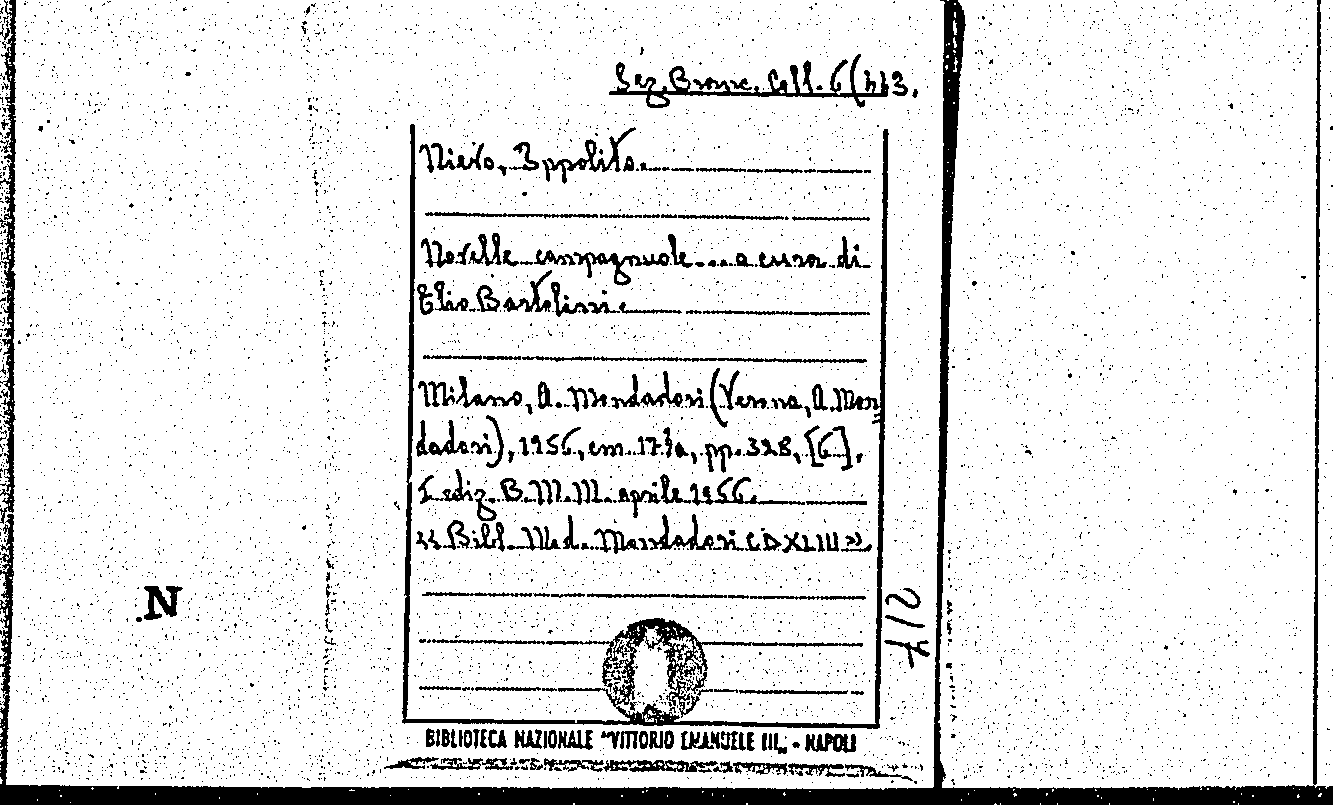 Sez. Branc. Coll. 6(443.
Nievo, Ippolito.
Novelle campagnuole... a cura di
Elio Bartolini.
Milano, A. Mondadori (Verona, A. Mon=
dadori), 1956, cm. 17½, pp. 328, [6].
I ediz. B. M. M. aprile 1956.
«Bibl. Mod. Mondadori CDXLIII».
N
BIBLIOTECA NAZIONALE "VITTORIO EMANUELE III„ - NAPOLI